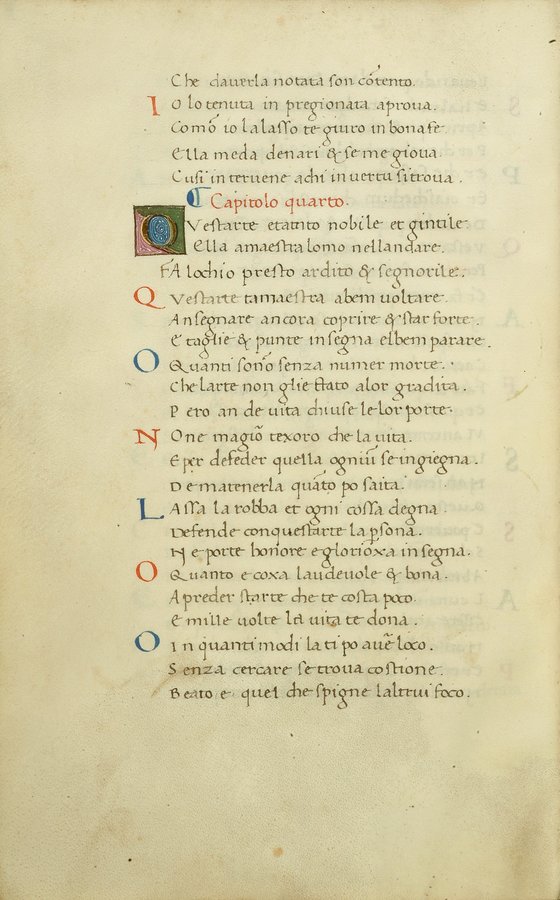 Che dauerla notata son cõtento.
IO lo tenuta in pregionata aproua.
Comõ io lalasso te giuro in bona fe
Ella meda denari & se me gioua.
Cusi interuene achi in uertu si troua.
Capitolo quarto.
QVestarte etanto nobile et gintile
Ella amaestra lomo nellandare.
FA lochio presto ardito & segnorile.
QVestarte tamaestra abem uoltare.
Ansegnare ancora coprire & star forte.
E taglie & punte insegna elbem parare.
OQuanti sonõ senza numer morte.
Che larte non glie stato alor gradita.
Pero an de uita chiuse le lor porte.
NOne magiõ texoro che la uita.
E per defeder quella ogniũ se ingiegna.
De matenerla quãto po saita.
LAssa la robba et ogni cossa degna.
Defende conquestarte la psona.
Ne porte honore e glorioxa insegna.
OQuanto e coxa laudeuole & bona.
Apreder starte che te costa poco
E mille uolte la uita te dona.
OIn quanti modi la ti po auẽ loco.
Senza cercare se troua costione.
Beato e quel che spigne laltrui foco.